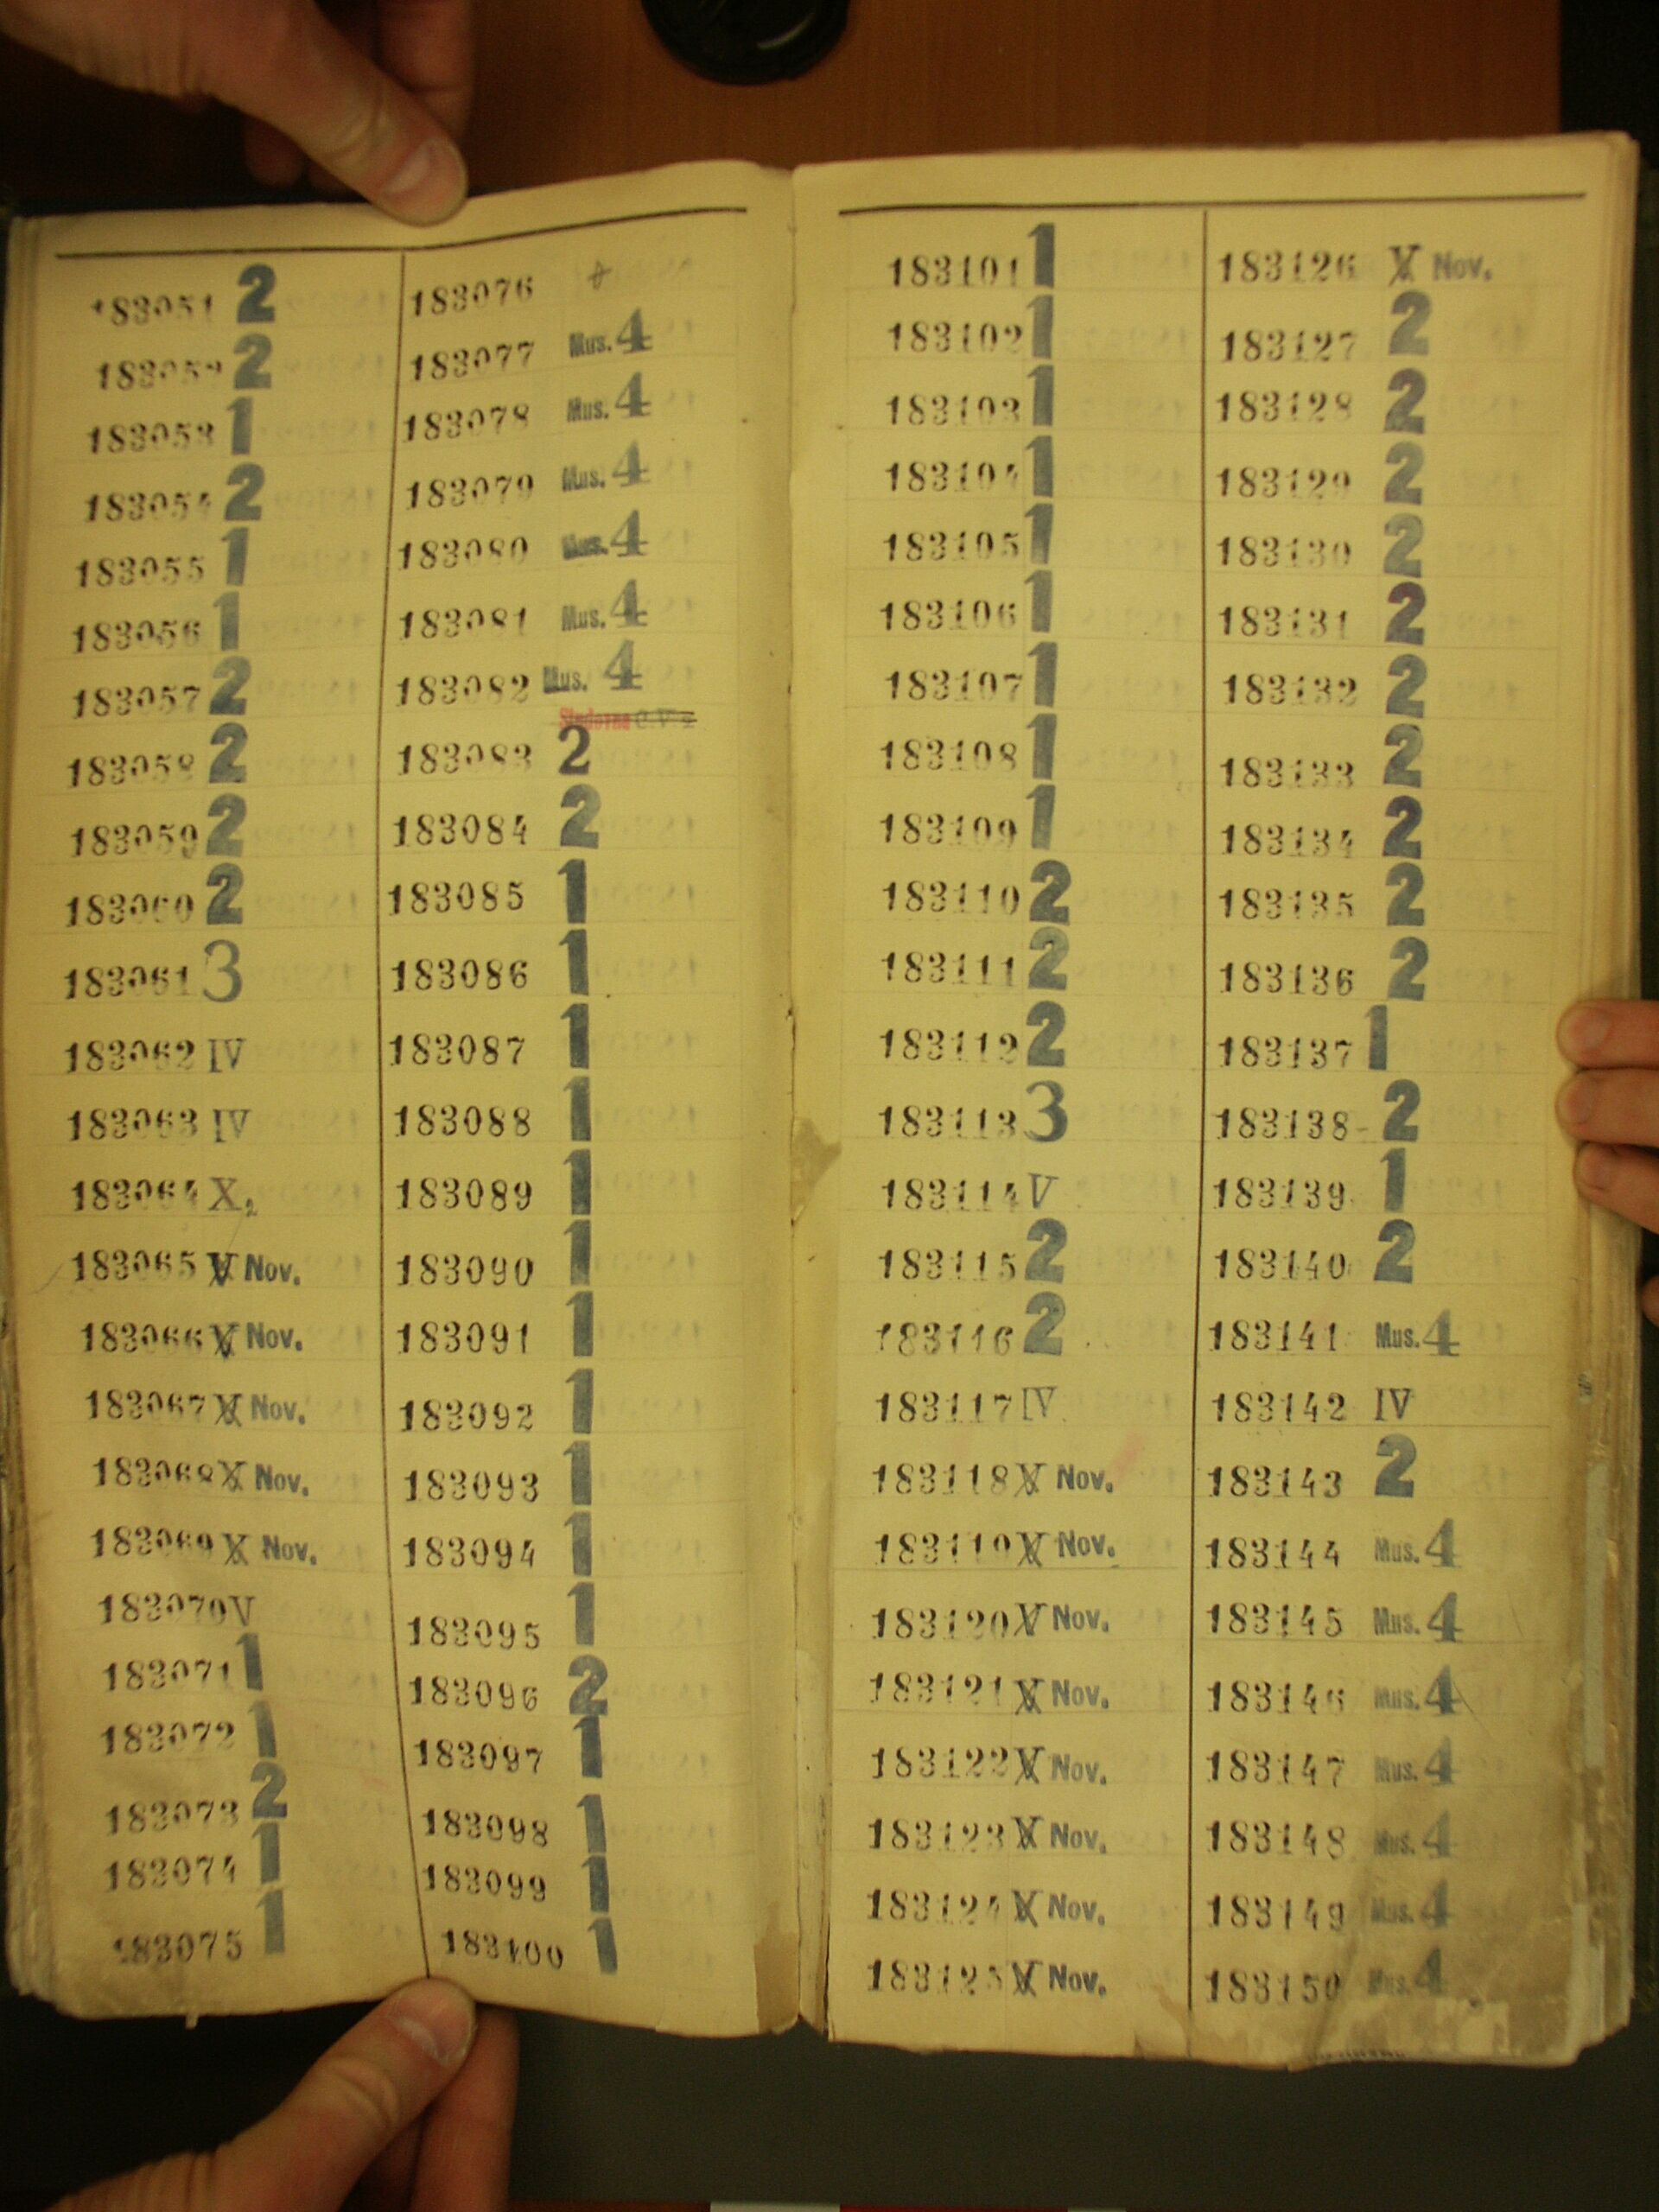 183051 2
183052 2
183053 1
183054 2
183055 1
183056 1
183057 2
183058 2
183059 2
183060 2
183061 3
183062 IV
183063 IV
183064 X2
183065 V Nov.
183066 V Nov.
183067 X Nov.
183068 X Nov.
183069 X Nov.
183070 V
183071 1
183072 1
183073 2
183074 1
183075 1
183076
183077 Mus. 4
183078 Mus. 4
183079 Mus. 4
183080 Mus. 4
183081 Mus. 4
183082 Mus. 4
183083 2
183084 2
183085 1
183086 1
183087 1
183088 1
183089 1
183090 1
183091 1
183092 1
183093 1
183094 1
183095 1
183096 2
183097 1
183098 1
183099 1
183100 1
183101 1
183102 1
183103 1
183104 1
183105 1
183106 1
183107 1
183108 1
183109 1
183110 2
183111 2
183112 2
183113 3
183114 V
183115 2
183116 2
183117 IV
183118 X Nov.
183119 X Nov.
183120 X Nov.
183121 X Nov.
183122 X Nov.
183123 X Nov.
183124 X Nov.
183125 X Nov.
183126 X Nov.
183127 2
183128 2
183129 2
183130 2
183131 2
183132 2
183133 2
183134 2
183135 2
183136 2
183137 1
183138 2
183139 1
183140 2
183141 Mus. 4
183142 IV
183143 2
183144 Mus. 4
183145 Mus. 4
183146 Mus. 4
183147 Mus. 4
183148 Mus. 4
183149 Mus. 4
183150 Mus. 4